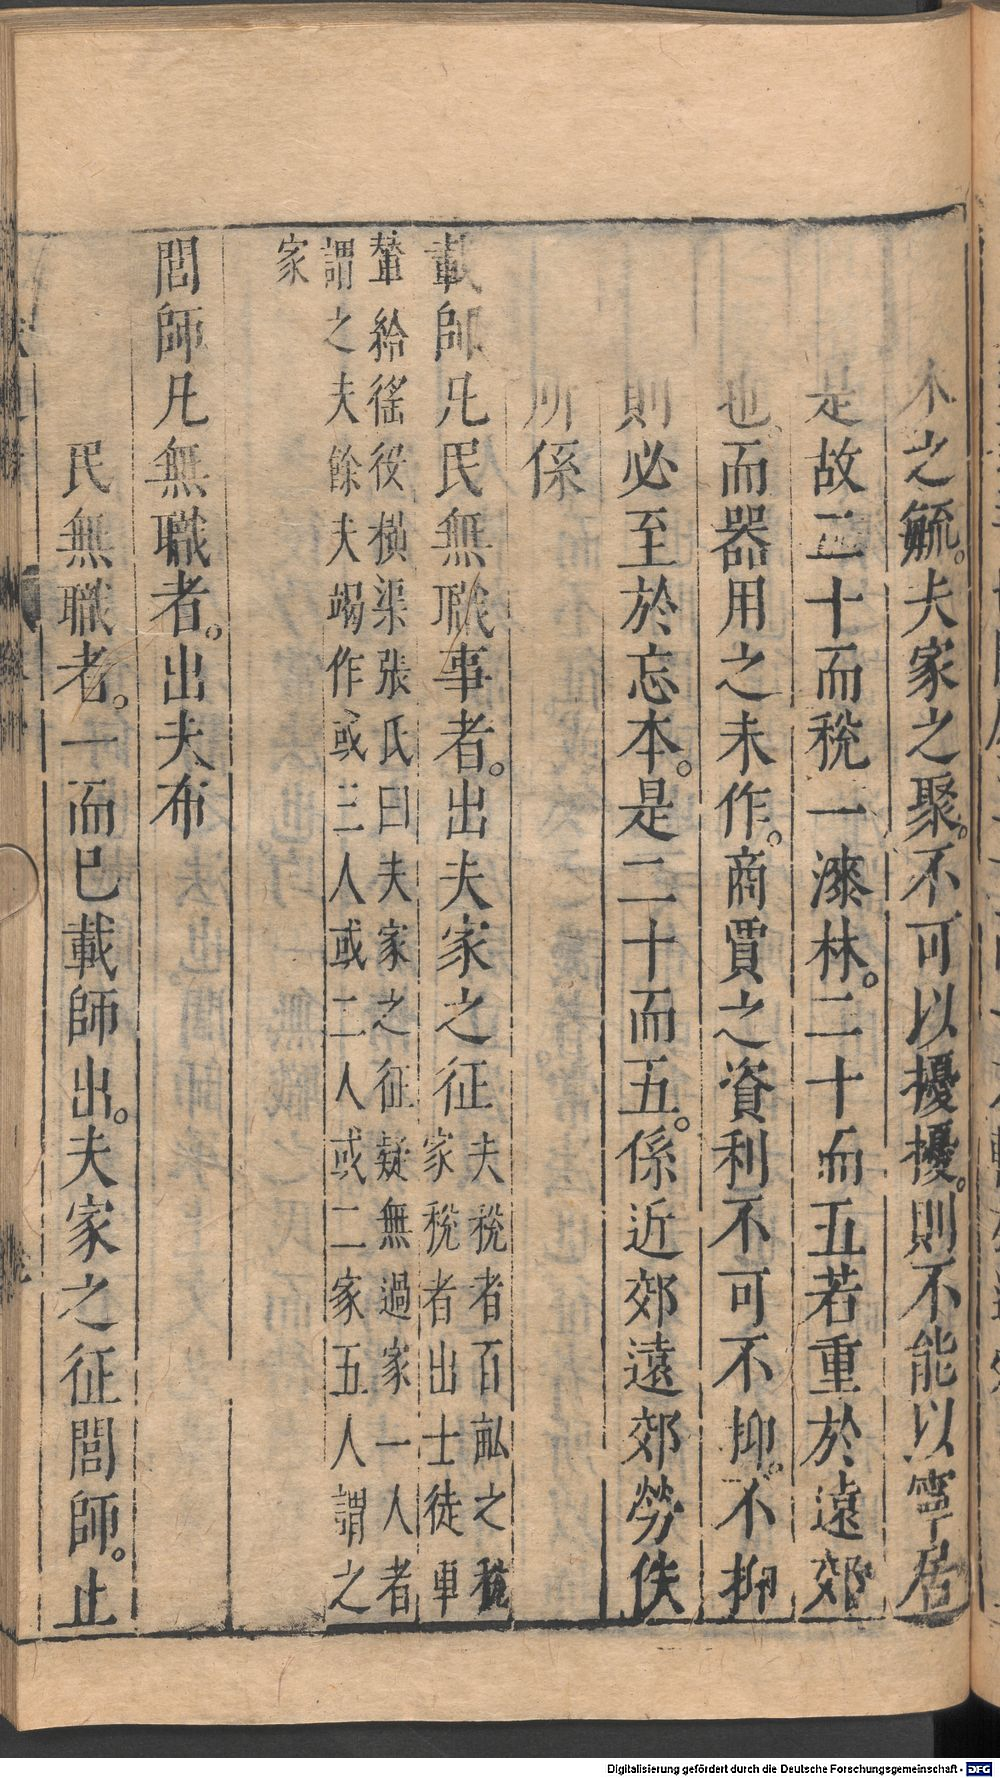 木之毓。夫家之聚。不可以擾擾。則不能以寧居
是故二十而稅一漆林。二十而五若重於遠郊
也。而器用之未作。商賈之資利不可不抑。不抑
則必至於忘本。是二十而五。係近郊遠郊勞佚
所係
載師凡民無職事者。出夫家之征夫稅者百畝之稅
家稅者出士徒車
輦給徭役橫渠張氏曰夫家之征疑無過家一人者
謂之夫餘夫竭作或三人或二人或二家五人謂之
家
閭師凡無職者。出夫布
民無職者。一而已載師出。夫家之征閭師。止
Digitalisierung gefördert durch die Deutsche Forschungsgemeinschaft - DFG